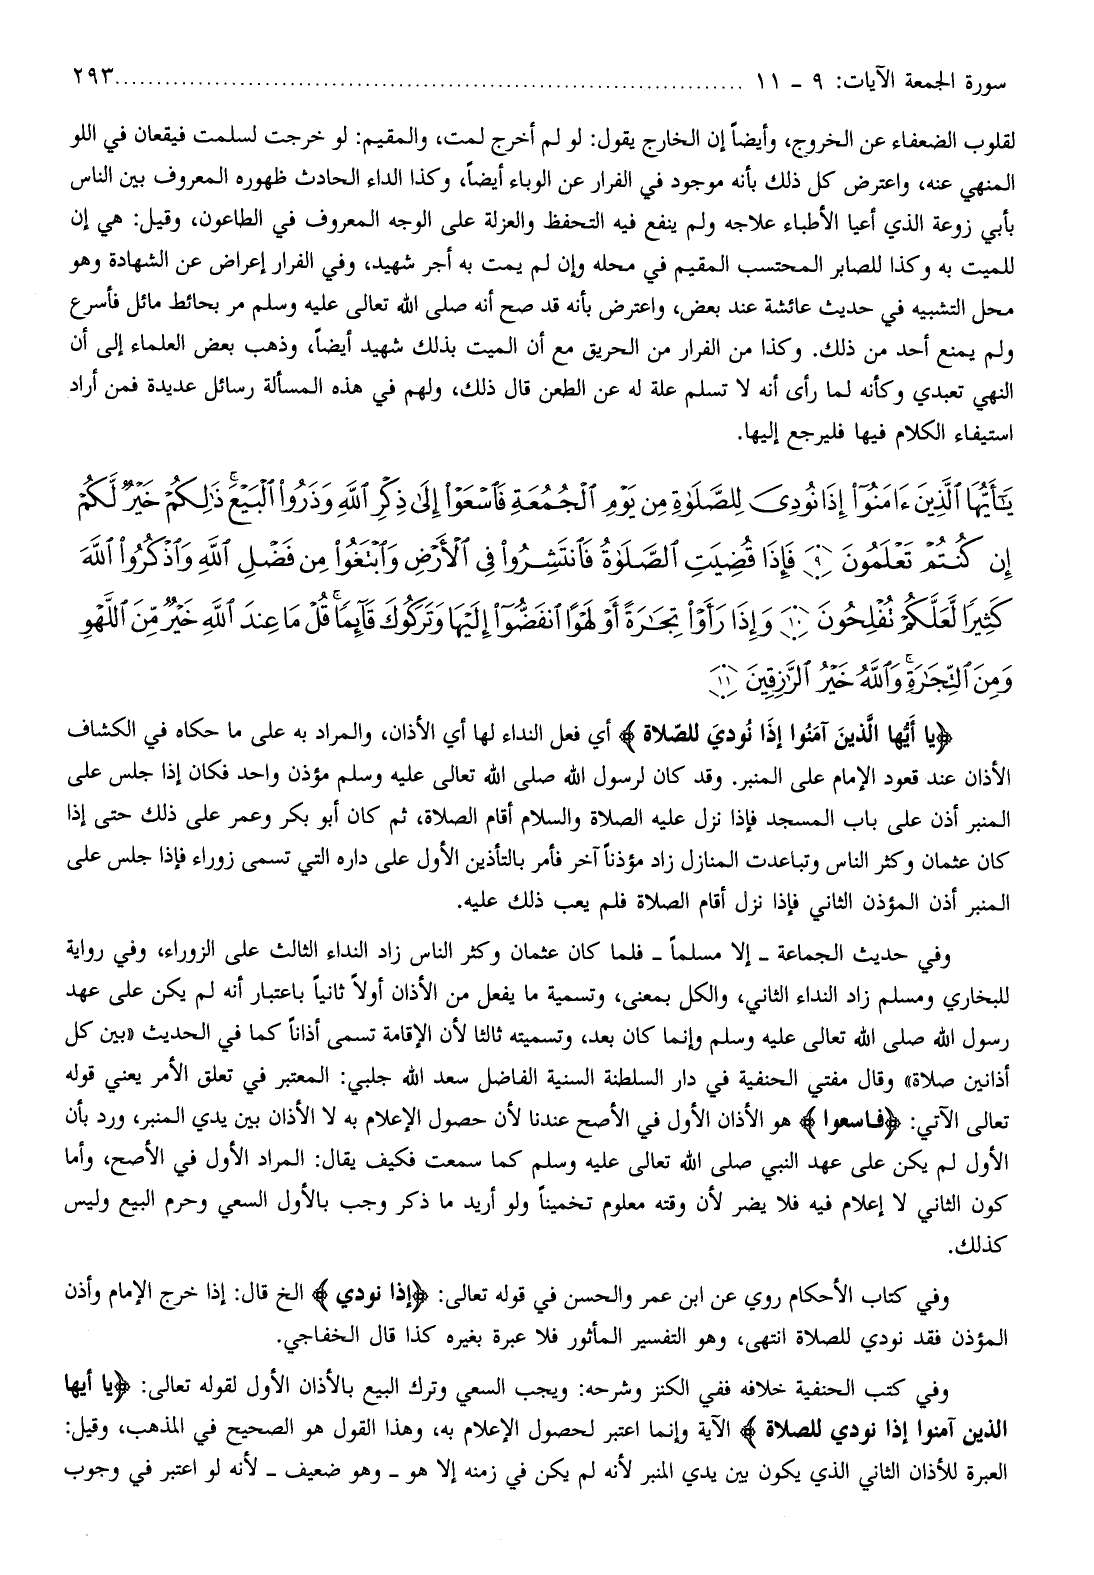 سورة الجمعة الآيات: ٩ ـ ١١ ........................................................................... ٢٩٣
لقلوب الضعفاء عن الخروج، وأيضاً إن الخارج يقول: لو لم أخرج لمت، والمقيم: لو خرجت لسلمت فيقعان في اللو
المنهي عنه، واعترض كل ذلك بأنه موجود في الفرار عن الوباء أيضاً، وكذا الداء الحادث ظهوره المعروف بين الناس
بأبي زوعة الذي أعيا الأطباء علاجه ولم ينفع فيه التحفظ والعزلة على الوجه المعروف في الطاعون، وقيل: هي إن
للميت به وكذا للصابر المحتسب المقيم في محله وإن لم يمت به أجر شهيد، وفي الفرار إعراض عن الشهادة وهو
محل التشبيه في حديث عائشة عند بعض، واعترض بأنه قد صح أنه صلى الله تعالى عليه وسلم مر بحائط مائل فأسرع
ولم يمنع أحد من ذلك. وكذا من الفرار من الحريق مع أن الميت بذلك شهيد أيضاً، وذهب بعض العلماء إلى أن
النهي تعبدي وكأنه لما رأى أنه لا تسلم علة له عن الطعن قال ذلك، ولهم في هذه المسألة رسائل عديدة فمن أراد
استيفاء الكلام فيها فليرجع إليها.
يَٰٓأَيُّهَا ٱلَّذِينَ ءَامَنُوٓا۟ إِذَا نُودِىَ لِلصَّلَوٰةِ مِن يَوْمِ ٱلْجُمُعَةِ فَٱسْعَوْا۟ إِلَىٰ ذِكْرِ ٱللَّهِ وَذَرُوا۟ ٱلْبَيْعَ ۚ ذَٰلِكُمْ خَيْرٌ لَّكُمْ
إِن كُنتُمْ تَعْلَمُونَ ﴿٩﴾ فَإِذَا قُضِيَتِ ٱلصَّلَوٰةُ فَٱنتَشِرُوا۟ فِى ٱلْأَرْضِ وَٱبْتَغُوا۟ مِن فَضْلِ ٱللَّهِ وَٱذْكُرُوا۟ ٱللَّهَ
كَثِيرًا لَّعَلَّكُمْ تُفْلِحُونَ ﴿١٠﴾ وَإِذَا رَأَوْا۟ تِجَٰرَةً أَوْ لَهْوًا ٱنفَضُّوٓا۟ إِلَيْهَا وَتَرَكُوكَ قَآئِمًا ۚ قُلْ مَا عِندَ ٱللَّهِ خَيْرٌ مِّنَ ٱللَّهْوِ
وَمِنَ ٱلتِّجَٰرَةِ ۚ وَٱللَّهُ خَيْرُ ٱلرَّٰزِقِينَ ﴿١١﴾
﴿يا أَيُّها الَّذينَ آمَنُوا إِذَا نُودِيَ للصّلاة﴾ أي فعل النداء لها أي الأذان، والمراد به على ما حكاه في الكشاف
الأذان عند قعود الإمام على المنبر. وقد كان لرسول الله صلى الله تعالى عليه وسلم مؤذن واحد فكان إذا جلس على
المنبر أذن على باب المسجد فإذا نزل عليه الصلاة والسلام أقام الصلاة، ثم كان أبو بكر وعمر على ذلك حتى إذا
كان عثمان وكثر الناس وتباعدت المنازل زاد مؤذناً آخر فأمر بالتأذين الأول على داره التي تسمى زوراء فإذا جلس على
المنبر أذن المؤذن الثاني فإذا نزل أقام الصلاة فلم يعب ذلك عليه.
وفي حديث الجماعة ـ إلا مسلماً ـ فلما كان عثمان وكثر الناس زاد النداء الثالث على الزوراء، وفي رواية
للبخاري ومسلم زاد النداء الثاني، والكل بمعنى، وتسمية ما يفعل من الأذان أولاً ثانياً باعتبار أنه لم يكن على عهد
رسول الله صلى الله تعالى عليه وسلم وإنما كان بعد، وتسميته ثالثا لأن الإقامة تسمى أذاناً كما في الحديث «بين كل
أذانين صلاة» وقال مفتي الحنفية في دار السلطنة السنية الفاضل سعد الله جلبي: المعتبر في تعلق الأمر يعني قوله
تعالى الآتي: ﴿فاسعوا﴾ هو الأذان الأول في الأصح عندنا لأن حصول الإعلام به لا الأذان بين يدي المنبر، ورد بأن
الأول لم يكن على عهد النبي صلى الله تعالى عليه وسلم كما سمعت فكيف يقال: المراد الأول في الأصح، وأما
كون الثاني لا إعلام فيه فلا يضر لأن وقته معلوم تخميناً ولو أريد ما ذكر وجب بالأول السعي وحرم البيع وليس
كذلك.
وفي كتاب الأحكام روي عن ابن عمر والحسن في قوله تعالى: ﴿إذا نودي﴾ الخ قال: إذا خرج الإمام وأذن
المؤذن فقد نودي للصلاة انتهى، وهو التفسير المأثور فلا عبرة بغيره كذا قال الخفاجي.
وفي كتب الحنفية خلافه ففي الكنز وشرحه: ويجب السعي وترك البيع بالأذان الأول لقوله تعالى: ﴿يا أيها
الذين آمنوا إذا نودي للصلاة﴾ الآية وإنما اعتبر لحصول الإعلام به، وهذا القول هو الصحيح في المذهب، وقيل:
العبرة للأذان الثاني الذي يكون بين يدي المنبر لأنه لم يكن في زمنه إلا هو ـ وهو ضعيف ـ لأنه لو اعتبر في وجوب